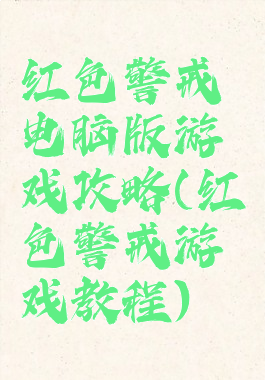 红色警戒
电脑版游
戏攻略(红
色警戒游
戏教程)